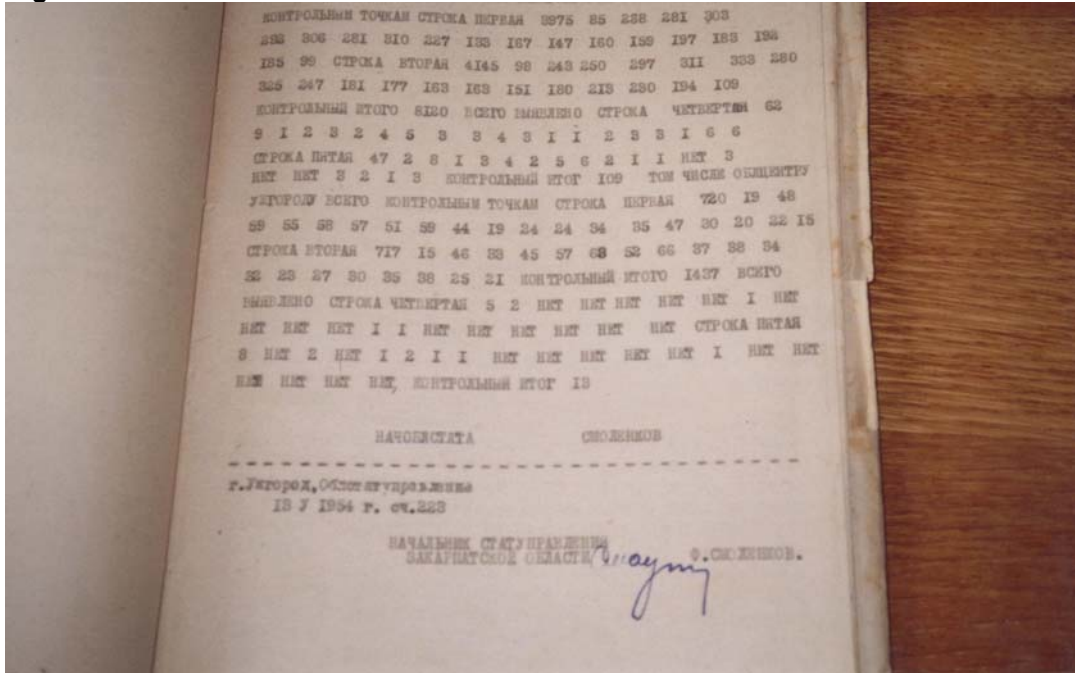 КОНТРОЛЬНЫМ ТОЧКАМ СТРОКА ПЕРВАЯ 3975 85 238 281 303
292 306 281 310 227 133 167 147 160 159 197 183 192
185 99 СТРОКА ВТОРАЯ 4145 98 243 250 297 311 333 280
325 247 181 177 163 163 151 180 213 230 194 109
КОНТРОЛЬНЫЙ ИТОГО 8120 ВСЕГО ВЫЯВЛЕНО СТРОКА ЧЕТВЕРТАЯ 62
9 1 2 3 2 4 5 3 3 4 3 1 1 2 3 3 1 6 6
СТРОКА ПЯТАЯ 47 2 8 1 3 4 2 5 6 2 1 1 НЕТ 3
НЕТ НЕТ 3 2 1 3 КОНТРОЛЬНЫЙ ИТОГ 109 ТОМ ЧИСЛЕ ОБЛЦЕНТРУ
УЖГОРОДУ ВСЕГО КОНТРОЛЬНЫМ ТОЧКАМ СТРОКА ПЕРВАЯ 720 19 48
59 55 58 57 51 59 44 19 24 24 34 35 47 30 20 22 15
СТРОКА ВТОРАЯ 717 15 46 33 45 57 68 52 66 37 38 34
32 23 27 30 35 38 25 21 КОНТРОЛЬНЫЙ ИТОГО 1437 ВСЕГО
ВЫЯВЛЕНО СТРОКА ЧЕТВЕРТАЯ 5 2 НЕТ НЕТ НЕТ НЕТ НЕТ 1 НЕТ
НЕТ НЕТ НЕТ 1 1 НЕТ НЕТ НЕТ НЕТ НЕТ НЕТ СТРОКА ПЯТАЯ
8 НЕТ 2 НЕТ 1 2 1 1 НЕТ НЕТ НЕТ НЕТ НЕТ 1 НЕТ НЕТ
НЕТ НЕТ НЕТ НЕТ, КОНТРОЛЬНЫЙ ИТОГ 13
НАЧОБЛСТАТА СМОЛЕНКОВ
г.Ужгород,Облстатуправление
13 У 1954 г. сч.223
НАЧАЛЬНИК СТАТУПРАВЛЕНИЯ
ЗАКАРПАТСКОЙ ОБЛАСТИ Ф.СМОЛЕНКОВ.